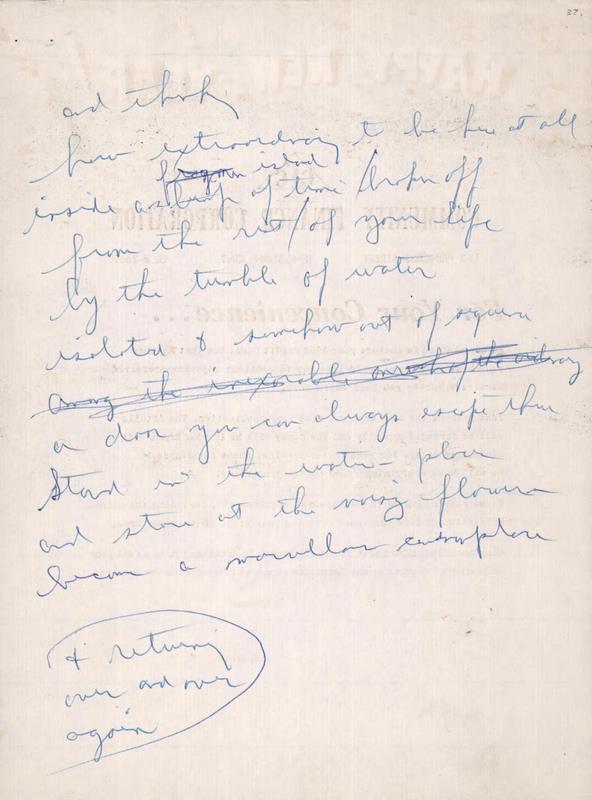 and think
how extraordinary to be here at all
fragmen island
inside a lump of time / broken off
from the rest / of your life
by the tumble of water
isolated & somehow out of square
among the inexorable of the ordinary
a door you can always escape thru
Stand in the water-place
and stare at the noisy flower
become a marvellous commonplace
& returning
over and over
again